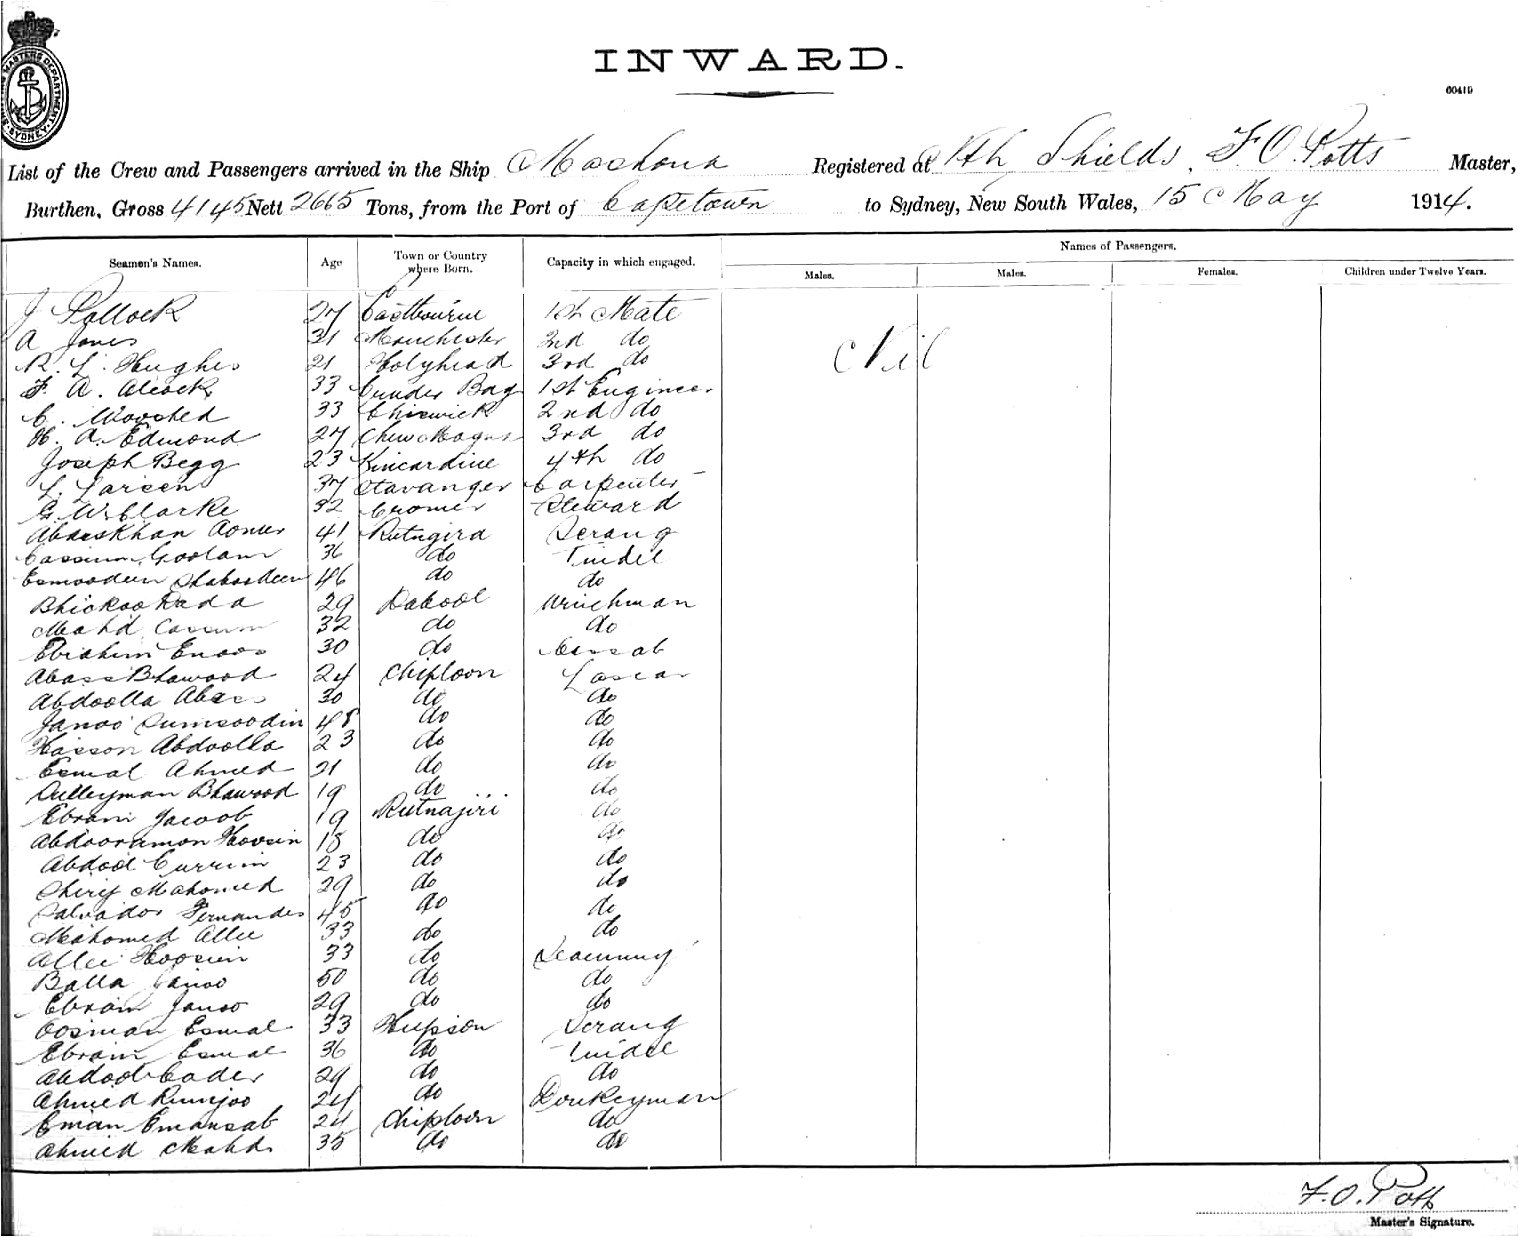 INWARD.
60419
List of the Crew and Passengers arrived in the Ship Mashona Registered at Nth Shields, F. O. Potts Master,
Burthen, Gross 4145 Nett 2665 Tons, from the Port of Capetown to Sydney, New South Wales, 15 May 1914.
Seamen's Names. Age Town or Country where Born. Capacity in which engaged. Names of Passengers.
Males. Males. Females. Children under Twelve Years.
J Pollock 27 Eastbourne 1st Mate
A Jones 31 Manchester 2nd do
Nil
R. L. Hughes 21 Holyhead 3rd do
F. A. Alcock 33 1st Engineer
C. 33 Chiswick 2nd do
H. A. Edmond 27 Chew Magna 3rd do
Joseph Begg 23 Kincardine 4th do
L. Larsen 37 Stavanger Carpenter
G. W. Clarke 32 Cromer Steward
Abaskhan 41 Rutngira Serang
Cassum Goolam 36 do Tindel
Esmoodeen Shaboodeen 46 do do
Bhickoo Dada 29 Dabool Winchman
Mahd Cassum 32 do do
Ebrahim 30 do Cassab
Abass Bhawood 24 Chiploon Lascar
Abdoolla Abass 30 do do
Janoo Sumsoodin 48 do do
Hasson Abdoolla 23 do do
Esmal Ahmed 21 do do
Sulleyman Bhawood 19 do do
Ebram Jacoob 19 Rutnajiri do
Abdooramon Hoosin 18 do do
Abdool Currim 23 do do
Sherif Mahomed 29 do do
Salvador Fernandes 45 do do
Mahomed Allee 33 do do
Allee Hoosein 33 do
Balla Janoo 50 do do
Ebram Janoo 29 do do
Oosman Esmal 33 Serang
Ebram Esmal 36 do Tindel
Abdool Cader 29 do do
Ahmed Rumjoo 24 do Donkeyman
Eman Emansab 24 Chiploon do
Ahmed Mahd 35 do do
F. O. Potts
Master's Signature.